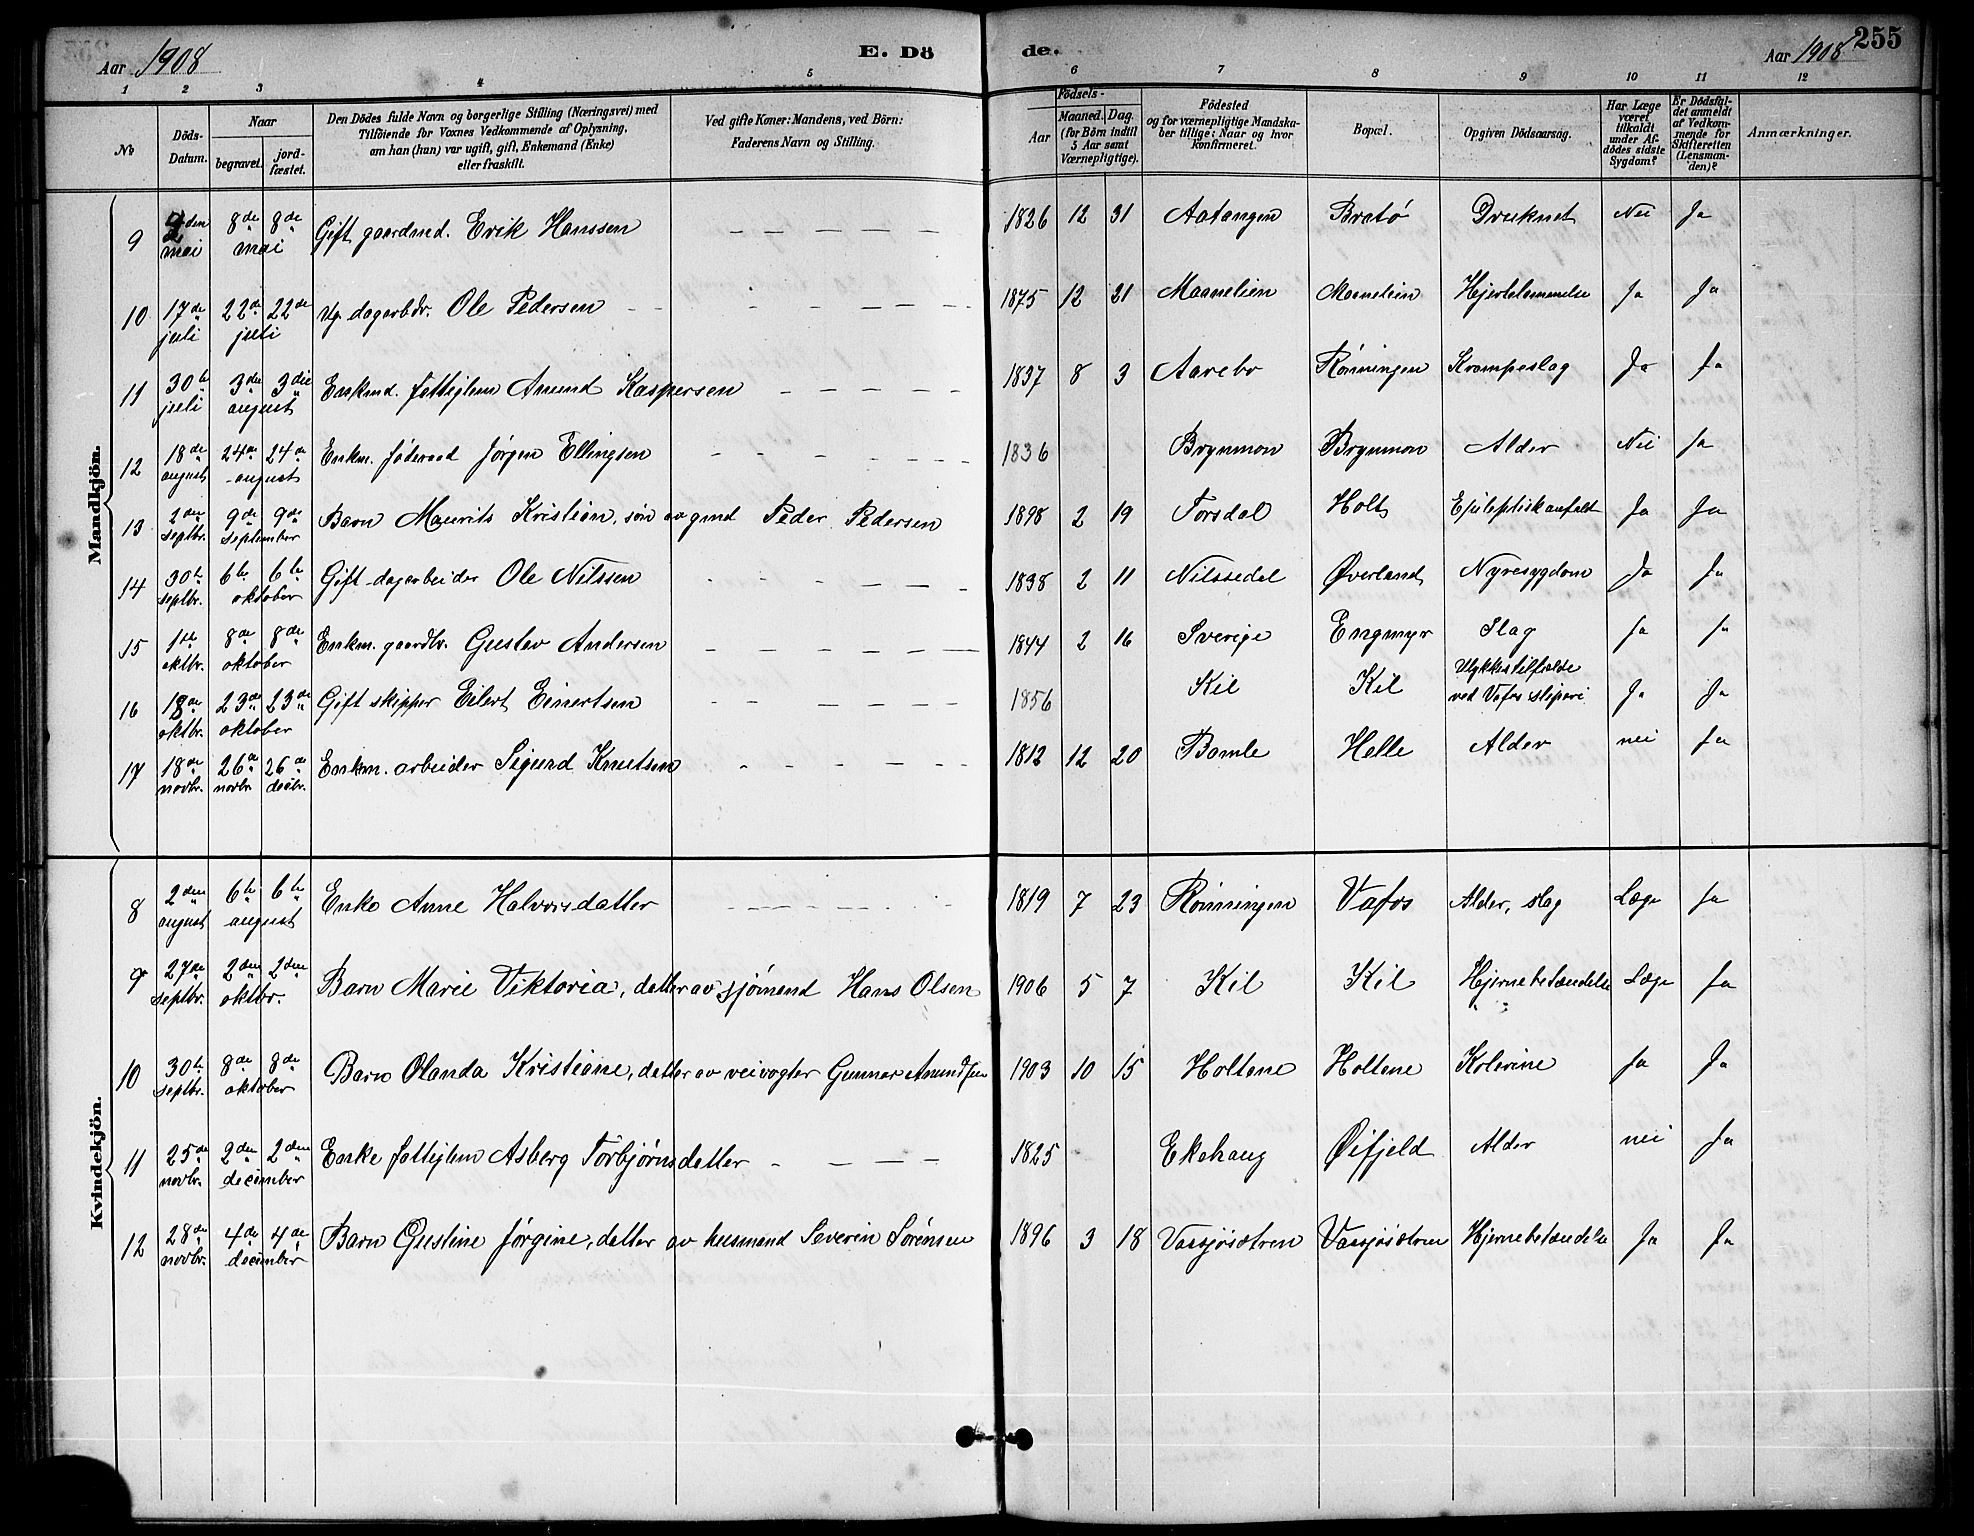 Aar 1908 E. Dö de. Aar 1908 255
1 2 3 4 5 6 7 8 9 10 11 12
No
Döds-Datum.
Naar
begravet.
jordfæstet.
Den Dödes fulde Navn og borgerlige Stilling (Næringsvei) med
Tilföiende for Voxnes Vedkommende af Oplysning,
om han (hun) var ugift, gift, Enkemand (Enke)
eller fraskilt.
Ved gifte Koner: Mandens, ved Börn:
Faderens Navn og Stilling.
Födsels-
Aar
Maaned. Dag.
(for Börn indtil
5 Aar samt
Værnepligtige).
Födested
og for værnepligtige Mandskaber tillige: Naar og hvor
konfirmeret.
Bopæl.
Opgiven Dödsaarsag.
Har Læge
været
tilkaldt
under Afdödes sidste
Sygdom?
Er Dödsfaldet anmeldt
af Vedkommende for
Skifteretten
(Lensmanden)?
Anmærkninger.
Mandkjön.
9 2den mai 8de 8de mai Gift gaardmd. Erik Hanssen 1826 12 31 Aatangen Bratø Druknet Nei Ja
10 17de juli 22de 22de juli Ug. dagarbdr. Ole Pedersen 1875 12 21 Maanelien Maanelien Hjertelammelse Ja Ja
11 30te juli 3die 3die august Enkmd. fattiglem Amund Kaspersen 1837 8 3 Aarebo Rønningen Krampeslag Ja Ja
12 18de august 24de 24de august Enkm. føderaad Jørgen Ellingsen 1836 Brynmon Brynmon Alder Nei Ja
13 2den septbr. 9de 9de september Barn Maurits Kristian, søn av gmd Peder Pedersen 1898 2 19 Torsdal Holt Epileptisk anfald Ja Ja
14 30te septbr. 6te 6te oktober Gift dagarbeider Ole Nilssen 1838 2 11 Nilssedal Øverland Nyresygdom Ja Ja
15 1ste oktbr. 8de 8de oktober Enkm. gaardbr. Gustav Andersen 1844 2 16 Sverige Engmyr Slag Ja Ja
16 18de oktbr. 23de 23de oktober Gift skipper Eilert Einertsen 1856 Kil Kil Ulykkestilfælde ved Vafos sliperi Ja Ja
17 18de novbr. 26de novbr. 26de decbr. Enkm. arbeider Sigurd Knutsen 1812 12 20 Bamle Helle Alder nei Ja
Kvindekjön.
8 2den august 6te 6te august Enke Anne Halvorsdatter 1819 7 23 Rønningen Vafos Alder, slag Læge Ja
9 27de septbr. 2den 2den oktbr. Barn Marie Viktoria, datter av sjømand Hans Olsen 1906 5 7 Kil Kil Hjernebetændelse Læge Ja
10 30te septbr. 8de 8de oktober Barn Olanda Kristiane, datter av veivogter Gunnar Amundsen 1903 10 15 Holtane Holtene Kolerine Ja Ja
11 25de novbr. 2den 2den december Enke fattiglem Asberg Torbjørnsdatter 1825 Ekehaug Øifjeld Alder nei Ja
12 28de novbr. 4de 4de december Barn Gustine Jørgine, datter av husmand Severin Sørensen 1896 3 18 Vassjøsætren Vassjøsætren Hjernebetændelse Ja Ja